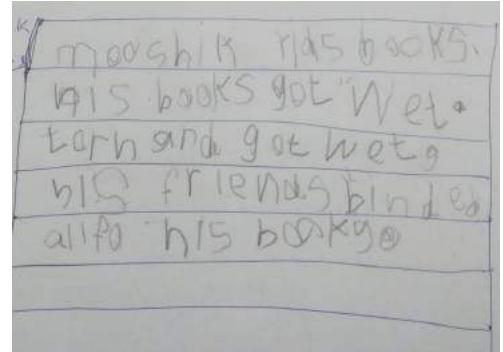 mooshik rids books.
his books got wet.
torn and got wet.
his friends binded
allfo his books.